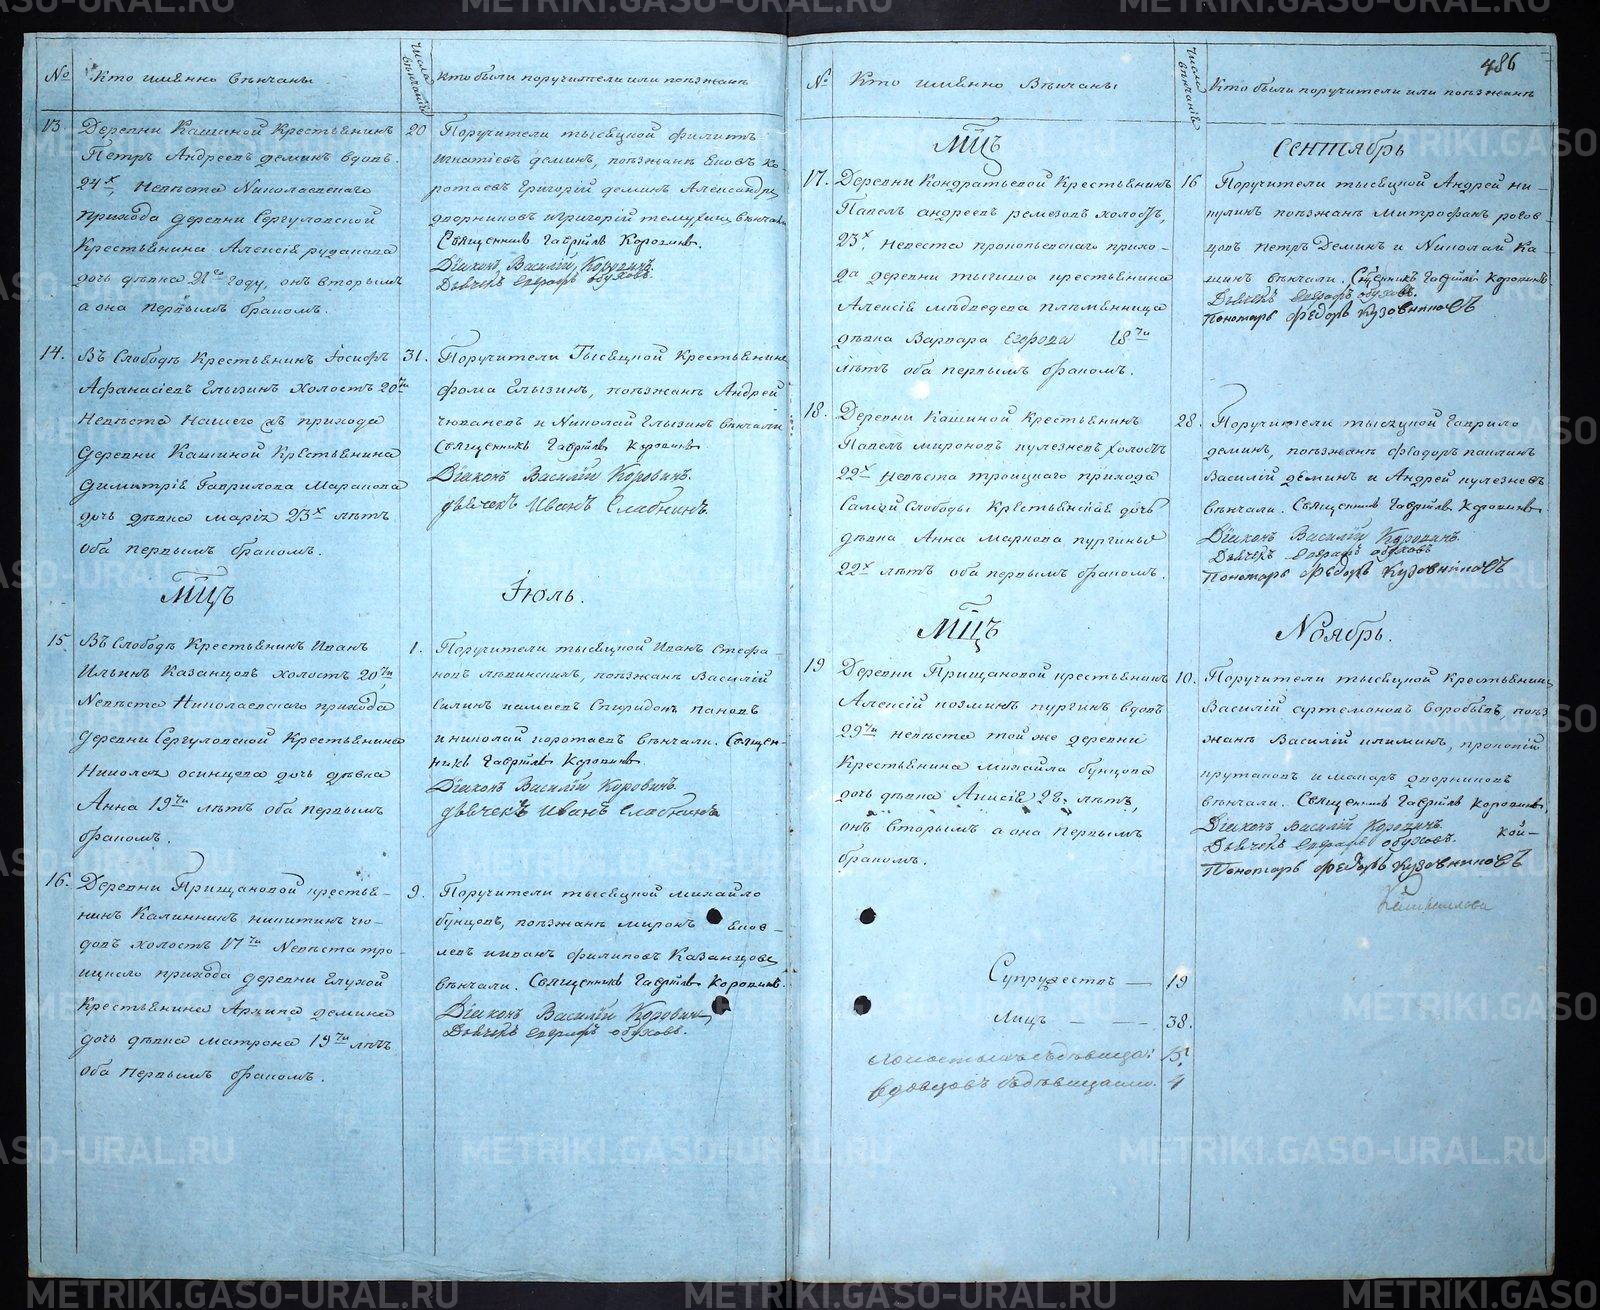 № Кто имянно венчаны
Числа венчанiя
Кто были поручители или поезжанъ
13 Деревни Кашиной Крестьянинъ
Петръ Андреевъ деминъ вдовъ.
24х, Невѣста Николаевскаго
прихода деревни Сергуловской
Крестьянина Алексiя рудакова
дочь дѣвка 21го году, онъ вторымъ
а она Первымъ бракомъ.
20
Поручители тысяцкой филиппъ
игнатiевъ деминъ, поѣзжанъ
ротаевъ григорiй деминъ Александръ
дворниковъ и григорiй венчали
Священникъ Гаврiилъ Коровинъ.
Дiяконъ Василiй Коровинъ.
Дьячекъ Евграфъ обуховъ.
14. Въ Слободѣ Крестьянинъ Iосифъ
Афанасiевъ Елызинъ холостъ 20ти
Невѣста Нашего прихода
деревни Кашиной Крестьянина
Димитрiя Гаврилова Маракова
дочь дѣвка марiя 23х лѣтъ
оба первымъ бракомъ.
31.
Поручители Тысяцкой Крестьянинъ
фома Елызинъ, поѣзжанъ Андрей
и Николай Елызинъ вѣнчали
Священникъ Гаврiилъ Коровинъ
Дiяконъ Василiй Коровинъ.
дьячекъ Иванъ Слабнинъ.
Мцъ Iюль.
15. Въ Слободѣ Крестьянинъ Иванъ
Ильинъ Казанцовъ холостъ 20ти
Невѣста Николаевскаго прихода
деревни Сергуловской Крестьянина
Николая осинцева дочь дѣвка
Анна 19ти лѣтъ оба первымъ
бракомъ.
1.
Поручители тысяцкой Иванъ Стефа-
новъ поѣзжанъ Василiй
Спиридонъ пановъ
и николай коротаевъ вѣнчали. Священ-
никъ Гаврiилъ Коровинъ
Дiяконъ Василiй Коровинъ.
дьячекъ Иванъ Слабнинъ
16. Деревни Прищановой крестья-
нинъ Калинникъ никитинъ чю-
довъ холостъ 17ти Невѣста тро-
ицкаго прихода деревни Глухой
Крестьянина Архипа демина
дочь дѣвка матрона 19ти лѣтъ
оба первымъ бракомъ.
9.
Поручители тысяцкой михайло
бунцовъ, поѣзжанъ миронъ
левъ иванъ филиповъ Казанцовъ
вѣнчали. Священникъ Гаврiилъ Коровинъ.
Дiяконъ Василiй Коровинъ
Дьячекъ Евграфъ обуховъ.
486
№ Кто имянно Вѣнчаны
Числа венчанiя
Кто были поручители или поѣзжанъ
Мцъ Сентябрь
17. Деревни Кондратьевой Крестьянинъ
Павелъ андреевъ ремезовъ холостъ,
23х, Невеста прокопьевскаго прихо-
да деревни тыгиша крестьянина
Алексiя медведева племянница
дѣвка Варвара Егорова 18ти
лѣтъ оба первымъ бракомъ.
16
Поручители тысяцкой Андрей ни-
кулинъ поѣзжанъ митрофанъ рогов-
цовъ петръ Деминъ и Николай Ка-
шинъ вѣнчали. Священникъ Гаврiилъ Коровинъ
Дьячекъ Евграфъ обуховъ.
Пономарь Федоръ Кузовниковъ
18. Деревни Кашиной Крестьянинъ
Павелъ мироновъ кулезневъ холостъ
22х Невѣста троицкаго прихода
Самой Слободы Крестьянская дочь
дѣвка Анна Маркова пургины
22х лѣтъ оба первымъ бракомъ.
28.
Поручители тысяцкой Гаврило
деминъ, поѣзжанъ федоръ
Василiй деминъ и Андрей кулезневъ
вѣнчали. Священникъ Гаврiилъ Коровинъ
Дiяконъ Василiй Коровинъ.
Дьячекъ Евграфъ обуховъ
Пономарь Федоръ Кузовниковъ
Мцъ Ноябрь.
19 Деревни Прищановой крестьянинъ
Алексiй козминъ пургинъ вдовъ
29ти невѣста той же деревни
Крестьянина михаила бунцова
дочь дѣвка Анисiя 22. лѣтъ,
онъ вторымъ а она первымъ
бракомъ.
10.
Поручители тысяцкой Крестьянинъ
Василiй артемоновъ Воробьевъ, поѣз
жанъ Василiй прокопiй
и макаръ дворниковъ
вѣнчали. Священникъ Гаврiилъ Коровинъ.
Дiяконъ Василiй Коровинъ.
Дьячекъ Евграфъ обуховъ.
Пономарь Федоръ Кузовниковъ
Супружествъ — 19
Лицъ — — 38.
METRIKI.GASO-URAL.RU